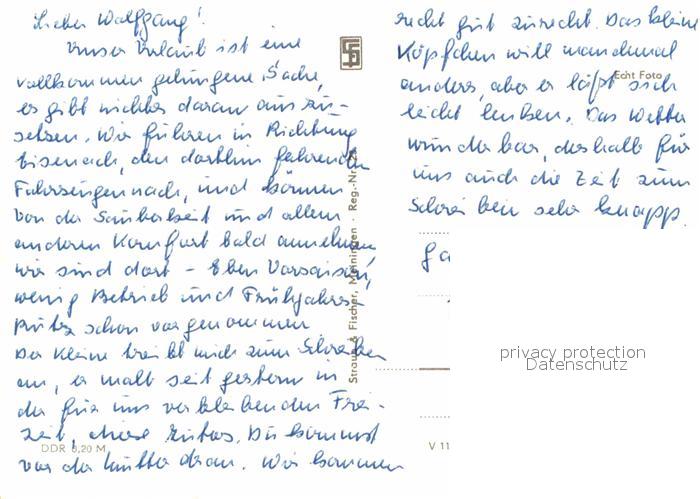 Lieber Wolfgang!
Unser Urlaub ist eine
vollkommen gelungene Sache,
es gibt nichts daran auszu-
setzen. Wir fuhren in Richtung
Eisenach, den dorthin fahrenden
Fahrzeugen nach, und können
von der Sauberkeit und allem
anderen Komfort bald annehmen
wir sind dort - Eben Vorsaison,
wenig Betrieb und Frühjahrs-
putz schon vorgenommen
Der Kleine treibt mich zum Schreiben
an, er malt seit gestern in
der für uns verbleibenden Frei-
zeit, diese Du kommst
vor der Mutter dran. Wir kommen
recht gut zurecht. Das kleine
Köpfchen will manchmal
anders, aber er läßt sich
leicht lenken. Das Wetter
wunderbar, deshalb für
uns auch die Zeit zum
Schreiben sehr knapp.
Echt Foto
Straub & Fischer, Meiningen · Reg.-Nr.
DDR 0,20 M
V 11
privacy protection
Datenschutz